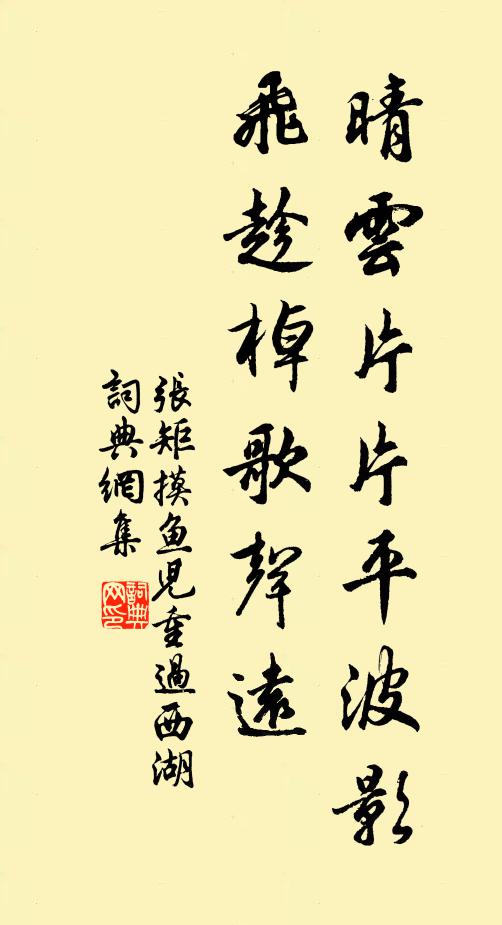 晴雲片片平波影
飛趁棹歌聲遠
張矩摸鱼児重過西湖
詞典網集
詞典網印